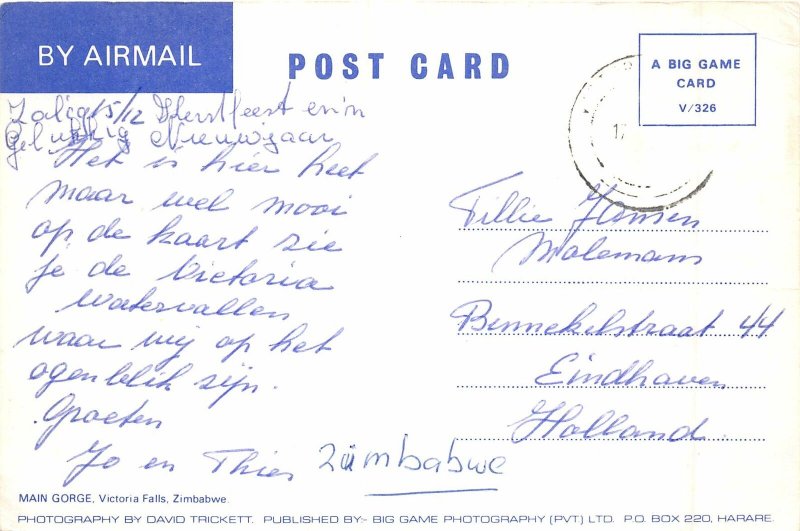 BY AIRMAIL
POST CARD
A BIG GAME
CARD
V/326
Zalig 15/12 Kerstfeest en'n
Gelukkig Nieuwjaar
Het is hier heet
maar wel mooi
op de kaart zie
je de Victoria
watervallen
waar wij op het
ogenblik zijn.
Groeten
Jo en Thies
Zimbabwe
Tillie
Molemans
Bennekelstraat 44
Eindhaven
Holland
MAIN GORGE, Victoria Falls, Zimbabwe.
PHOTOGRAPHY BY DAVID TRICKETT. PUBLISHED BY:- BIG GAME PHOTOGRAPHY (PVT) LTD. P.O. BOX 220, HARARE.